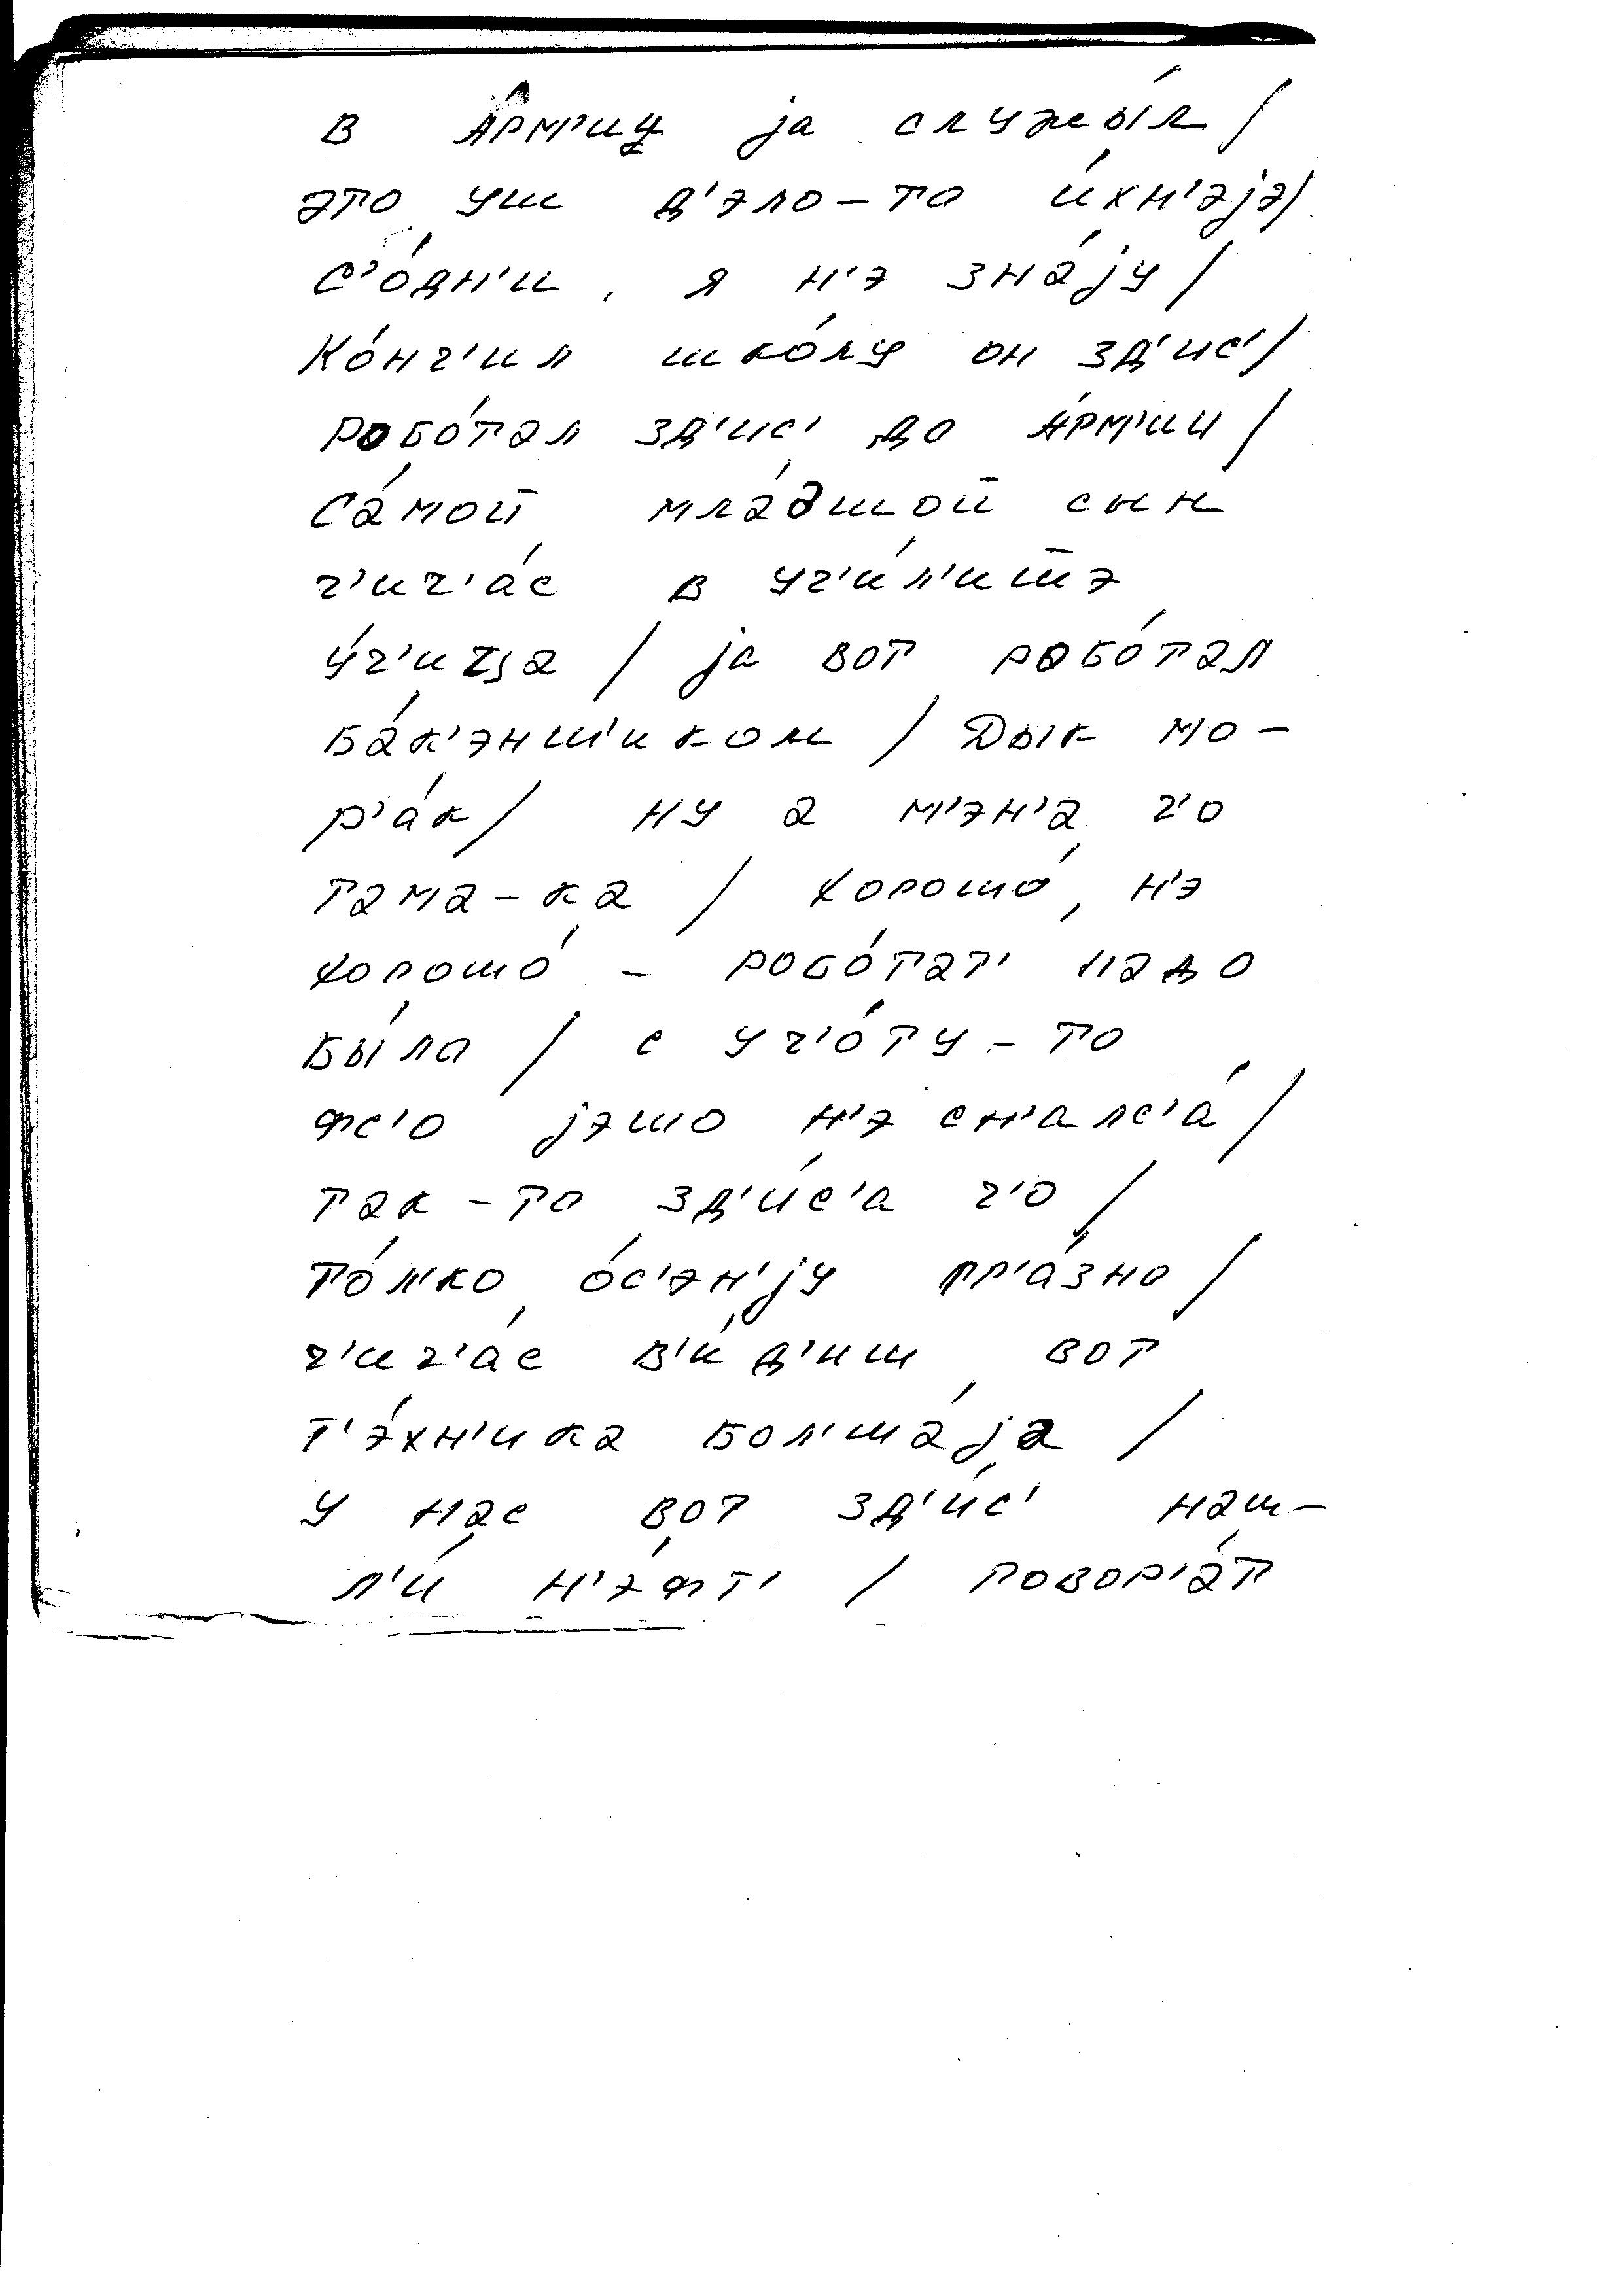 в а́рм'иц ја служы́л /
это уш д'эло – то и́хн'эјэ /
с'о́дн'и, я н'э зна́ју /
ко́нч'ил шко́лу он зд'ис' /
робо́тал зд'ис' до а́рм'ии /
са́мой мла́дшой сын
ч'ич'а́с в уч'и́л'иш̅э
у́ч'ица / ја вот робо́тал
ба́к'энш'иком / Дык мо –
р'а́к / ну а м'эн'а ч'о
тама – ка / хорошо́, н'э
хорошо́ – робо́тат' надо
бы́ло / с уч'о́ту – то
фс'о јэшо н'э сн'алс'а́ /
так – то зд'и́с'а ч'о /
то́л'ко о́с'эн'ју гр'а́зно /
ч'ич'а́с в'и́д'иш вот
т'э́хн'ика бол'ша́ја /
у нас вот зд'и́с' наш –
л'и́ н'э́фт' / говор'а́т